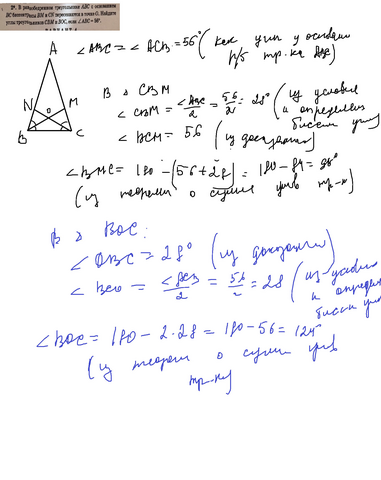 2*. В равнобедренном треугольнике ABC с основанием
BC биссектрисы BM и CN пересекаются в точке O. Найдите
углы треугольников CBM и BOC, если ∠ABC = 56°.
A
N
M
O
B
C
∠ABC = ∠ACB = 56° (как углы у основан
р/б тр-ка ABC)
В △ CBM
∠CBM = ∠ABC/2 = 56/2 = 28° (из условия
и определен
биссек угла)
∠BCM = 56 (из доказанн)
∠BMC = 180 - (56+28) = 180 - 84 =
(из теоремы о сумме углов тр-к)
В △ BOC:
∠OBC = 28° (из доказанн)
∠BCO = ∠BCB/2 = 56/2 = 28 (из условия
и определ
биссек угла
∠BOC = 180 - 2·28 = 180 - 56 = 124°
(из теорем о сумме углов
тр-ка)